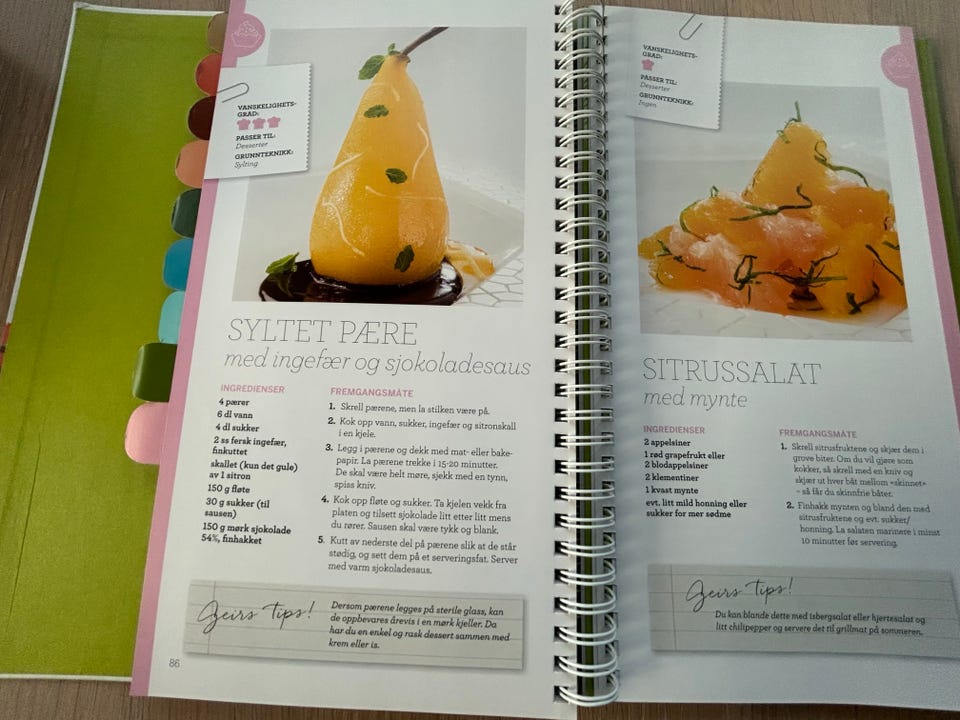 VANSKELIGHETS-
GRAD:
PASSER TIL:
Desserter
GRUNNTEKNIKK:
Sylting
SYLTET PÆRE
med ingefær og sjokoladesaus
INGREDIENSER
4 pærer
6 dl vann
4 dl sukker
2 ss fersk ingefær,
finkuttet
skallet (kun det gule)
av 1 sitron
150 g fløte
30 g sukker (til
sausen)
150 g mørk sjokolade
54%, finhakket
FREMGANGSMÅTE
1. Skrell pærene, men la stilken være på.
2. Kok opp vann, sukker, ingefær og sitronskall
i en kjele.
3. Legg i pærene og dekk med mat- eller bake-
papir. La pærene trekke i 15-20 minutter.
De skal være helt møre, sjekk med en tynn,
spiss kniv.
4. Kok opp fløte og sukker. Ta kjelen vekk fra
platen og tilsett sjokolade litt etter litt mens
du rører. Sausen skal være tykk og blank.
5. Kutt av nederste del på pærene slik at de står
stødig, og sett dem på et serveringsfat. Server
med varm sjokoladesaus.
Geirs tips!
Dersom pærene legges på sterile glass, kan
de oppbevares årevis i en mørk kjeller. Da
har du en enkel og rask dessert sammen med
krem eller is.
86
VANSKELIGHETS-
GRAD:
PASSER TIL:
Desserter
GRUNNTEKNIKK:
Ingen
SITRUSSALAT
med mynte
INGREDIENSER
2 appelsiner
1 rød grapefrukt eller
2 blodappelsiner
2 klementiner
1 kvast mynte
evt. litt mild honning eller
sukker for mer sødme
FREMGANGSMÅTE
1. Skrell sitrusfruktene og skjær dem i
grove biter. Om du vil gjøre som
kokker, så skrell med en kniv og
skjær ut hver båt mellom «skinnet»
– så får du skinnfrie båter.
2. Finhakk mynten og bland den med
sitrusfruktene og evt. sukker/
honning. La salaten marinere i minst
10 minutter før servering.
Geirs tips!
Du kan blande dette med isbergsalat eller hjertesalat og
litt chilipepper og servere det til grillmat på sommeren.